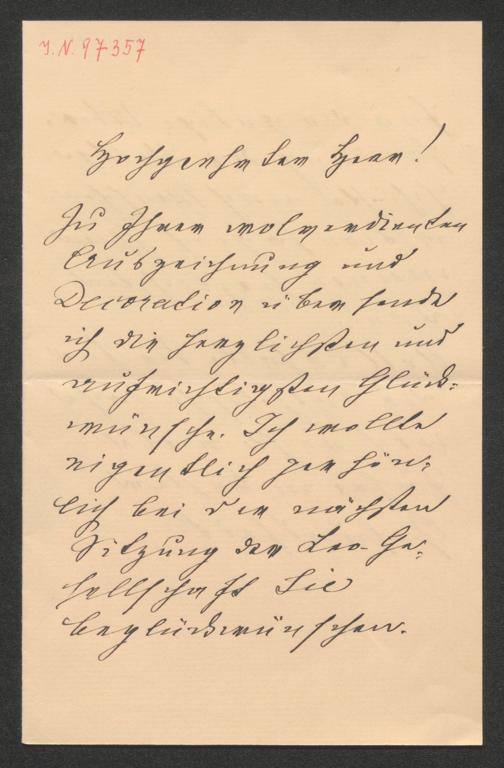 J. N. 97357
Hochgeehrter Herr!
Zu Ihrer wolverdienten
Auszeichnung und
Decoration übersende
ich die herzlichsten und
aufrichtigsten Glück-
wünsche. Ich wollte
eigentlich persön-
lich bei der nächsten
Sitzung der Leo-Ge-
sellschaft Sie
beglückwünschen.